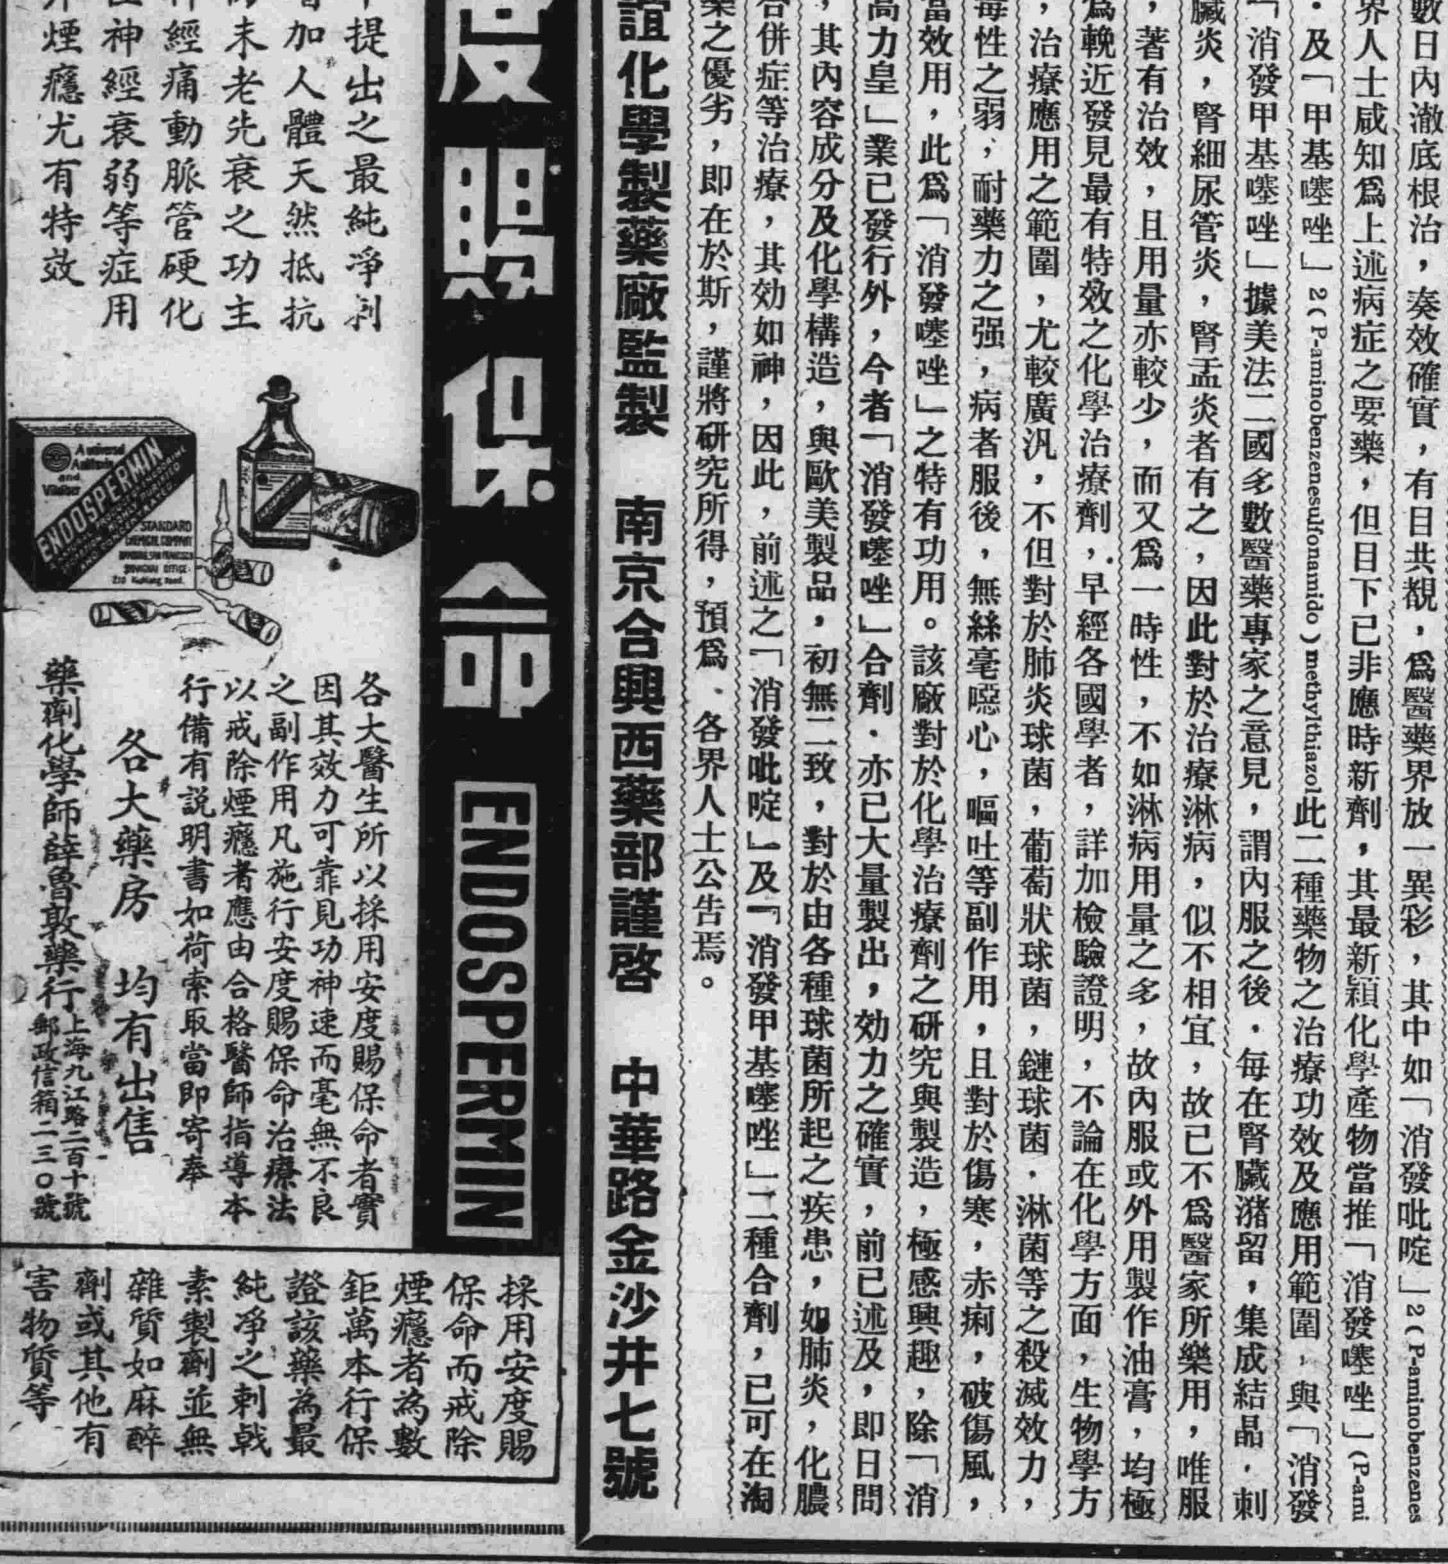 數日內澈底根治，奏效確實，有目共覩，爲醫藥界放一異彩，其中如「消發吡啶」2(P-aminobenzenes
界人士咸知爲上述病症之要藥，但目下已非應時新劑，其最新穎化學產物當推「消發噻唑」(P-ami
．及「甲基噻唑」2(P-aminobenzenesulfonamido)methylthiazol此二種藥物之治療功效及應用範圍，與「消發
「消發甲基噻唑」據美法二國多數醫藥專家之意見，謂內服之後．每在腎臟潴留，集成結晶．刺
臟炎，腎細尿管炎，腎盂炎者有之，因此對於治療淋病，似不相宜，故已不爲醫家所樂用，唯服
，著有治效，且用量亦較少，而又爲一時性，不如淋病用量之多，故內服或外用製作油膏，均極
爲輓近發見最有特效之化學治療劑，早經各國學者，詳加檢驗證明，不論在化學方面，生物學方
，治療應用之範圍，尤較廣汎，不但對於肺炎球菌，葡萄狀球菌，鏈球菌．淋菌等之殺滅效力，
毒性之弱，耐藥力之强，病者服後，無絲毫噁心，嘔吐等副作用，且對於傷寒，赤痢，破傷風，
當效用，此爲「消發噻唑」之特有功用。該廠對於化學治療劑之研究與製造，極感興趣，除「消
高力皇」業已發行外，今者「消發噻唑」合劑．亦已大量製出，効力之確實，前已述及，即日問
，其內容成分及化學構造，與歐美製品，初無二致，對於由各種球菌所起之疾患，如肺炎，化膿
合併症等治療，其効如神，因此，前述之「消發吡啶」及「消發甲基噻唑」二種合劑，已可在淘
藥之優劣，即在於斯，謹將研究所得，預爲　各界人士公告焉。
誼化學製藥廠監製　南京合興西藥部謹啓　中華路金沙井七號
度賜保命 ENDOSPERMIN
提出之最純淨刺
加人體天然抵抗
未老先衰之功主
經痛動脈管硬化
神經衰弱等症用
煙癮尤有特效
A universal
Antitoxin
and
Vitalizer
ENDOSPERMIN
STANDARD
CHEMICAL COMPANY
SHANGHAI OFFICE
210 Kiukiang Road.
各大醫生所以採用安度賜保命者實
因其效力可靠見功神速而毫無不良
之副作用凡施行安度賜保命治療法
以戒除煙癮者應由合格醫師指導本
行備有説明書如荷索取當即寄奉
各大藥房　均有出售
藥劑化學師薛魯敦藥行
上海九江路二百十號
郵政信箱二三〇號
採用安度賜
保命而戒除
煙癮者為數
鉅萬本行保
證該藥為最
純淨之刺戟
素製劑並無
雜質如麻醉
劑或其他有
害物質等